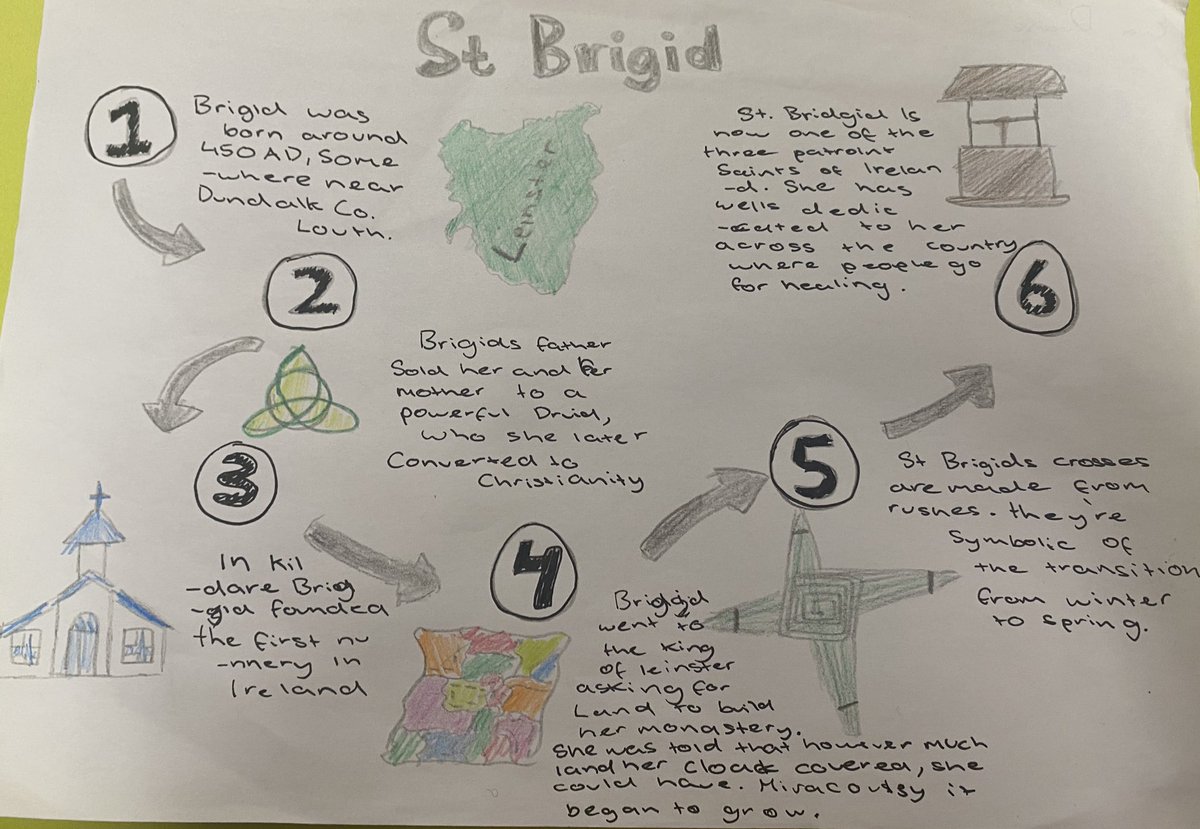 St Brigid
1
Brigid was
born around
450AD, Some
-where near
Dundalk Co.
Louth.
Leinster
2
Brigids father
Sold her and her
mother to a
powerful Druid,
who she later
Converted to
Christianity
3
In Kil
-dare Brig
-gid founded
the first nu
-nnery In
Ireland
4
Briggid
went to
the King
of leinster
asking for
Land to build
her monastery.
She was told that however much
land her cloak covered, she
could have. Miracoulsy it
began to grow.
5
St Brigids crosses
are made from
rushes. they're
Symbolic of
the transition
from winter
to spring.
6
St. Bridgid Is
now one of the
three patroint
Saints of Irelan
-d. She has
wells dedic
-cated to her
across the country
where people go
for healing.